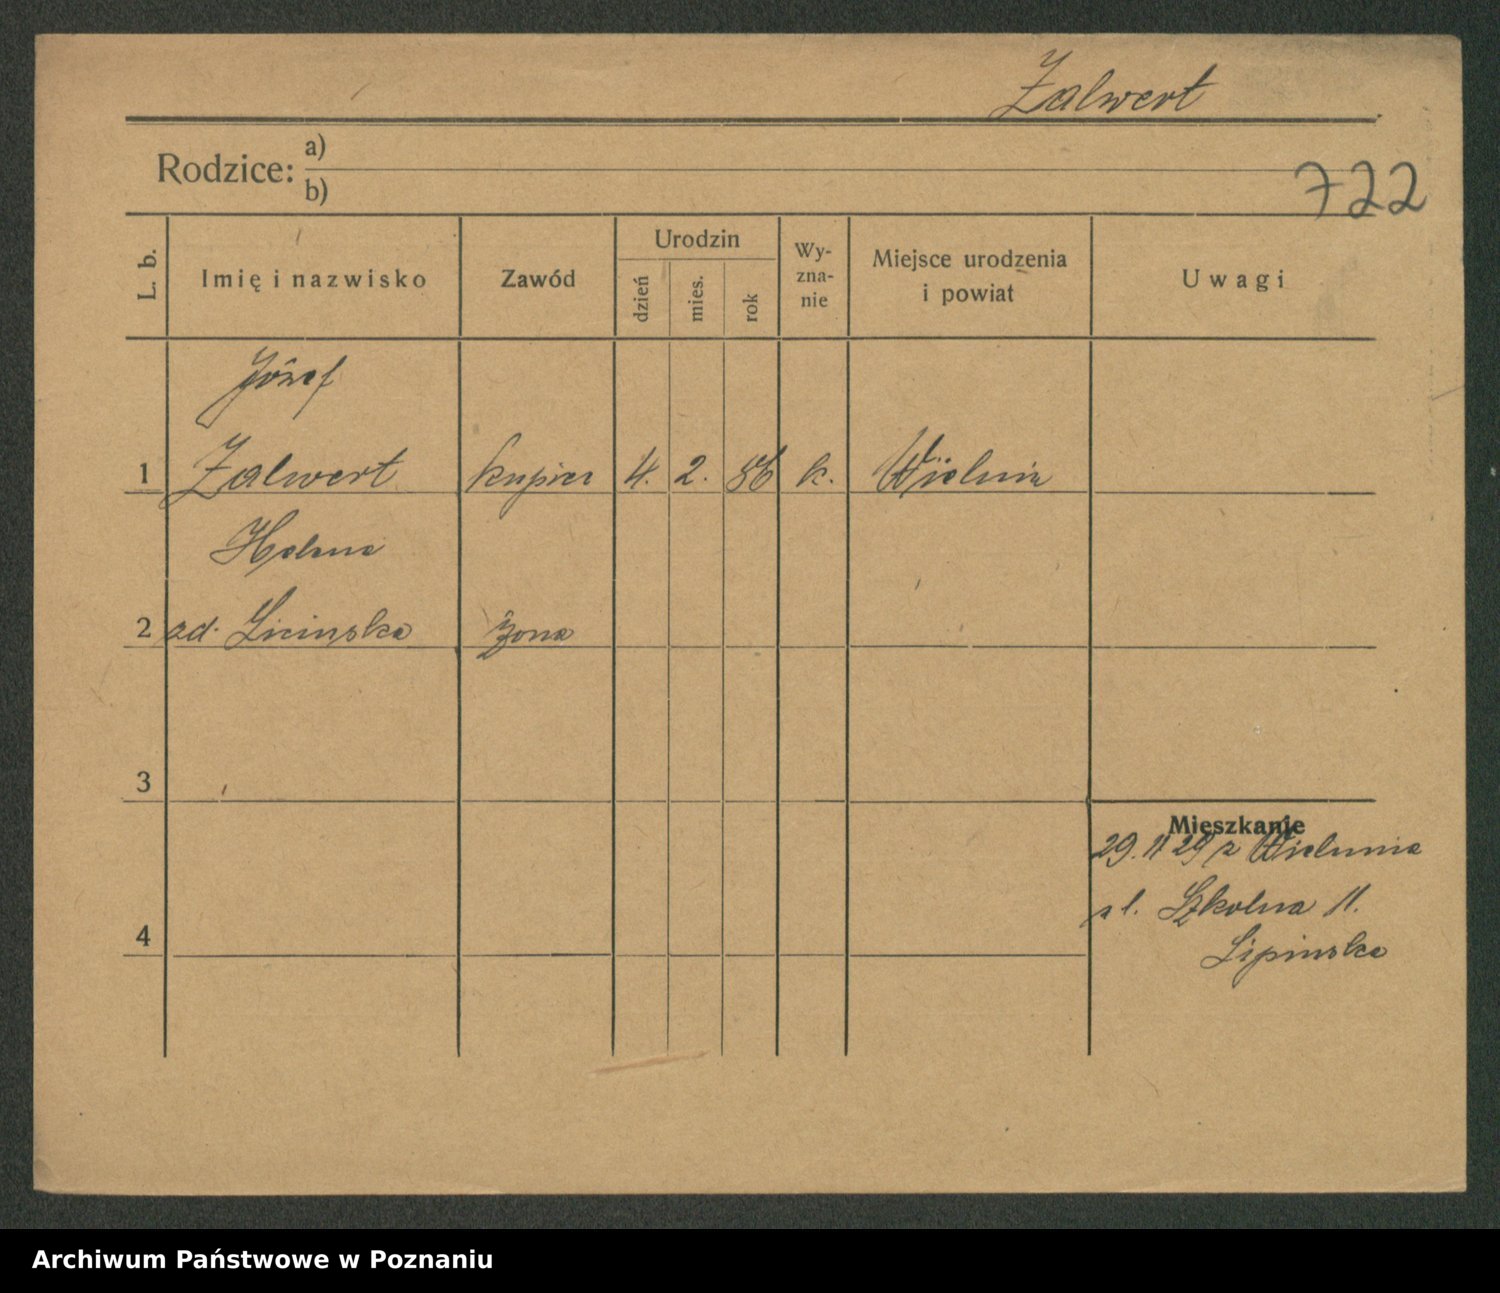 Zalwert
Rodzice: a)
b)
722
L. b.
Imię i nazwisko
Zawód
Urodzin
dzień
mies.
rok
Wy-
zna-
nie
Miejsce urodzenia
i powiat
Uwagi
Józef
1 Zalwert kupiec 4. 2. 86 k. Wieluń
Helena
2 zd. Licinska żona
3
Mieszkanie
29. 11 29 z Wielunia
ul. Szkolna 11.
4
Lipinska
Archiwum Państwowe w Poznaniu